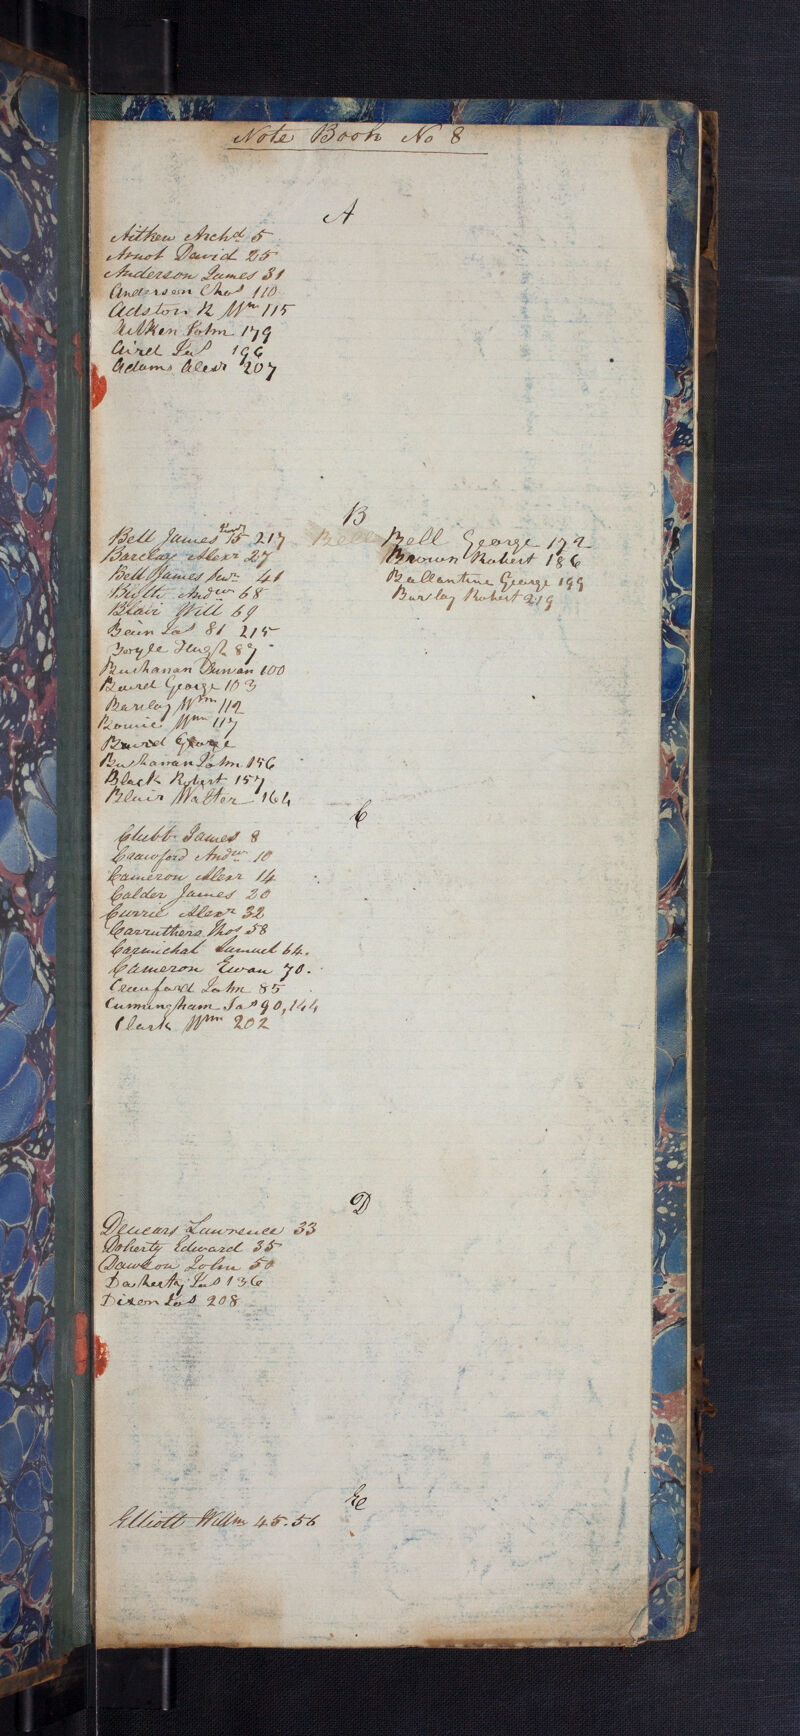 Note Book No 8
A
Aitken Archd 5
Arnot David 25
Anderson James 31
Anderson Chas 110
Adston R Wm 115
Aitken John 179
Aird Jas 196
Adams Alexr 207
B
Bell James 15 217
Barclay Alexr 27
Bell James Senr 41
Andw 68
Blair Will 69
Bain Jas 81 215
Boyle Hugh 87
Buchanan Duncan 100
Baird George 103
Barclay Wm 112
Bowie Wm 117
Baird George
Buchanan John 156
Black Robert 157
Blair Walter 164
Bell Bell George 172
Brown Robert 186
Ballantine George 199
Barclay Robert 219
C
Clubb James 8
Crawford Andw 10
Cameron Alexr 14
Calder James 20
Currie Alexr 32
Carruthers Thos 58
Carmichal Samuel 64.
Cameron Ewan 70.
Crawford John 85
Cunningham Jas 90, 144
Clark Wm 202
D
Deucars Lawrence 33
Doherty Edward 35
Dawson John 50
Dacherty Jas 136
Dixon Jas 208
E
Elliott Willm 45. 56